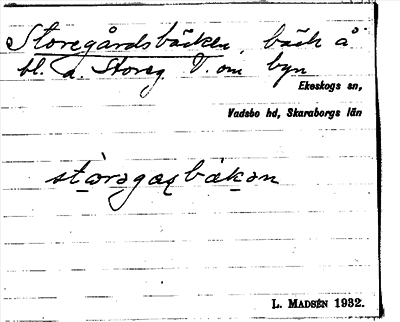 Storegårdsbäcken, bäck å
bl. a. Storeg. V. om byn
Ekeskogs sn,
Vadsbo hd, Skaraborgs län
L. MADSÉN 1932.